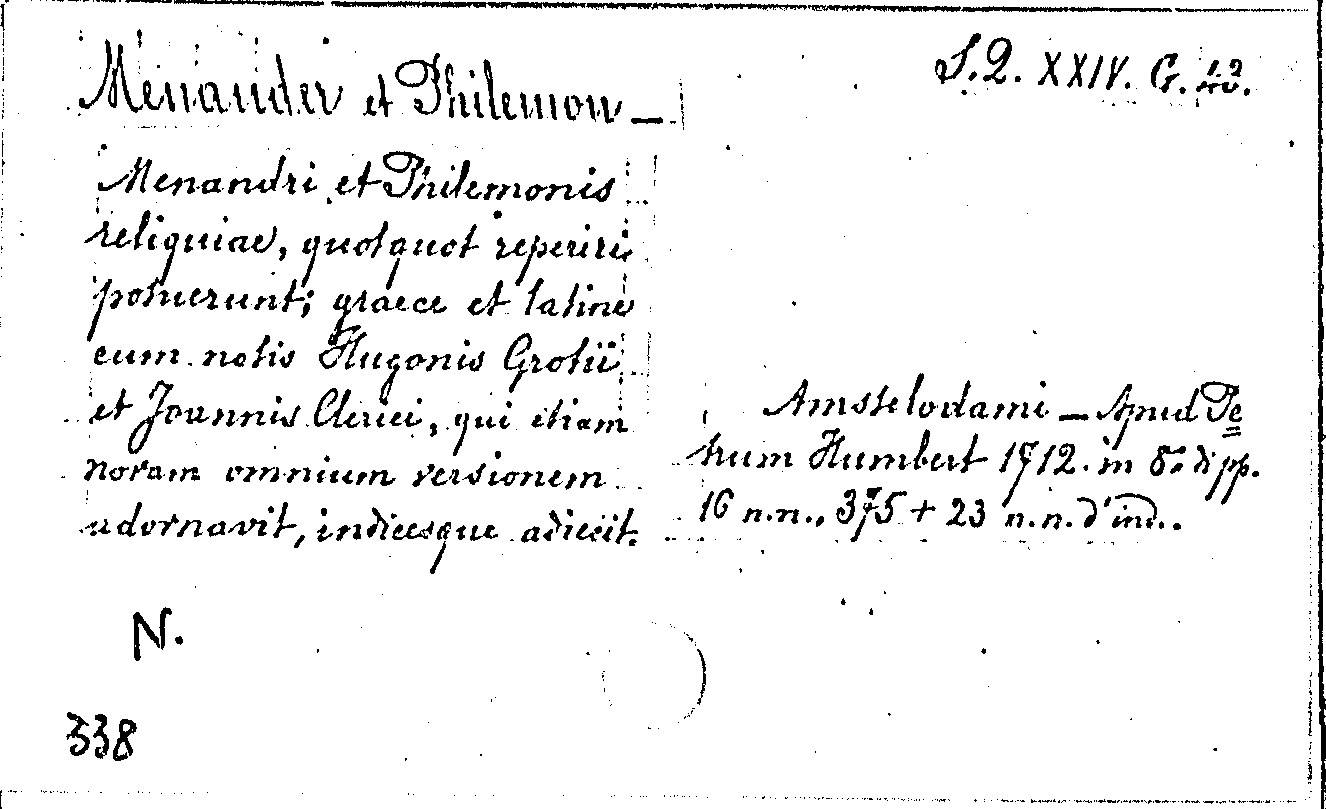 Menander et Philemon —
S. Q. XXIV. G. 42.
Menandri et Philemonis
reliquiae, quotquot reperiri
potuerunt; graece et latine
cum notis Hugonis Grotii
et Joannis Clerici, qui etiam
novam omnium versionem
adornavit, indicesque adiecit.
Amstelodami — Apud Pe
trum Humbert 1712. in 8º di pp.
16 n.n., 375 + 23 n.n. d'ind..
N.
338